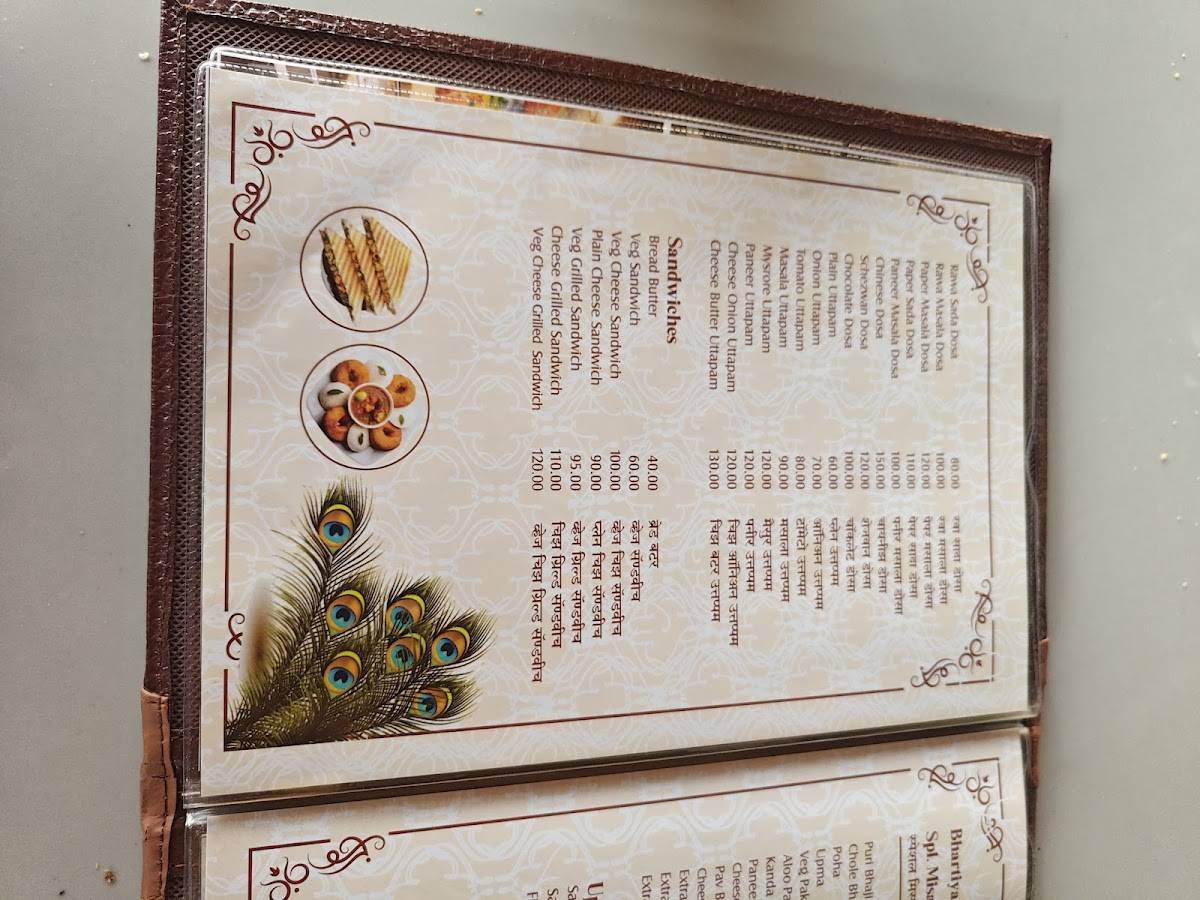 Rawa Sada Dosa 80.00 रवा सादा डोसा
Rawa Masala Dosa 100.00 रवा मसाला डोसा
Paper Masala Dosa 120.00 पेपर मसाला डोसा
Paper Sada Dosa 110.00 पेपर सादा डोसा
Paneer Masala Dosa 100.00 पनीर मसाला डोसा
Chinese Dosa 150.00 चायनीझ डोसा
Schezwan Dosa 120.00 शेजवान डोसा
Chocolate Dosa 100.00 चॉकलेट डोसा
Plain Uttapam 60.00 प्लेन उत्तप्पम
Onion Uttapam 70.00 ऑनिअन उत्तप्पम
Tomato Uttapam 80.00 टॉमेटो उत्तप्पम
Masala Uttapam 90.00 मसाला उत्तप्पम
Mysrore Uttapam 120.00 मैसुर उत्तप्पम
Paneer Uttapam 120.00 पनीर उत्तप्पम
Cheese Onion Uttapam 120.00 चिझ ऑनिअन उत्तप्पम
Cheese Butter Uttapam 130.00 चिझ बटर उत्तप्पम
Sandwiches
Bread Butter 40.00 ब्रेड बटर
Veg Sandwich 60.00 व्हेज सॅण्डवीच
Veg Cheese Sandwich 100.00 व्हेज चिझ सॅण्डवीच
Plain Cheese Sandwich 90.00 प्लेन चिझ सॅण्डवीच
Veg Grilled Sandwich 95.00 व्हेज ग्रिल्ड सॅण्डवीच
Cheese Grilled Sandwich 110.00 चिझ ग्रिल्ड सॅण्डवीच
Veg Cheese Grilled Sandwich 120.00 व्हेज चिझ ग्रिल्ड सॅण्डवीच
Bhartiya
Spl. Misa
स्पेशल मिस
Puri Bhaji
Chole Bh
Poha
Upma
Veg Pak
Aloo Pa
Kanda
Panee
Chees
Pav B
Chee
Extra
Extra
Extr
Up
Sa
Sa